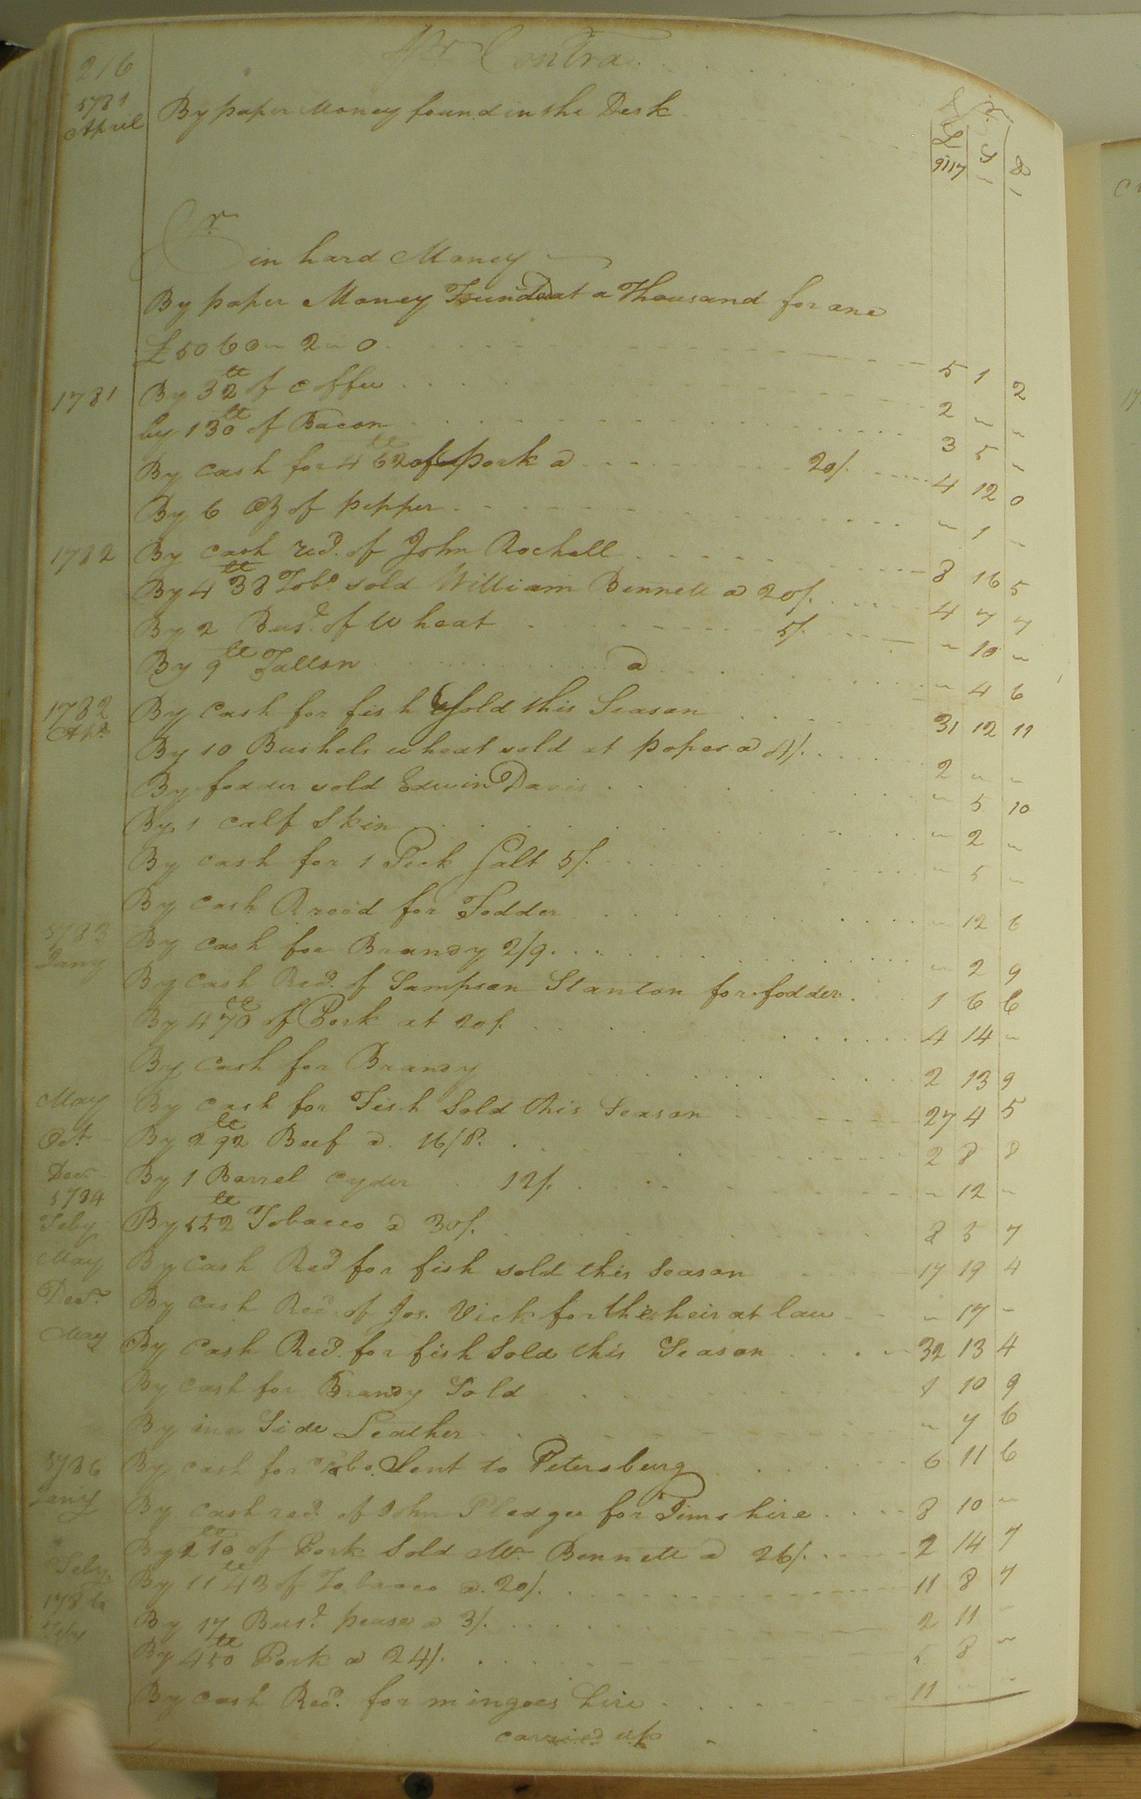 216 Pr Contra
1781 April By paper Money found in the Desk
£ S D
9117 - -
Cr
in hard Money
By paper Money Found at a Thousand for one
£5060-2-0 5 1 2
1781 By 32 lb of Coffee 2 - -
by 130 lb of Bacon 3 5 -
By Cash for 462 lb of pork a 20/ 4 12 0
By 6 oz of pepper - 1 -
1782 By Cash recd. of John Rochell 8 16 5
By 438 lb Tobo. sold William Bennett a 20/. 4 7 7
By 2 Busl. of Wheat 5/ - 10 -
By 9 lb Tallon a - 4 6
1782 Apr. By Cash for fish Sold this Season 31 12 11
By 10 Bushels wheat sold at popes a 4/. 2 - -
By fodder sold Edwin Davis - 5 10
By 1 Calf Skin - 2 -
By Cash for 1 Peck Salt 5/. - 5 -
By Cash Recd for Fodder - 12 6
1783 By Cash for Brandy 2/9. - 2 9
Jany By Cash Recd. of Sampson Stanton for fodder. 1 6 6
By 470 lb of Pork at 20/. 4 14 -
By Cash for Brandy 2 13 9
May By Cash for Fish Sold this Season 27 4 5
Oct. By 292 lb Beef a. 16/8. 2 8 8
Decr By 1 Barrel Cyder 12/. - 12 -
1784
Feby By 552 lb Tobacco a 30/. 8 5 7
May By Cash Recd for fish sold this Season 17 19 4
Decr. By Cash Recd. of Jos. Vick for the heir at law - 17 -
May By Cash Recd. for fish Sold this Season 32 13 4
By Cash for Brandy Sold 1 10 9
By one Side Leather - 7 6
1786 By cash for Tobo. Sent to Petersburg 6 11 6
Jany By Cash recd. of John Pledger for Tims hire 8 10 -
By 210 lb of Pork Sold Wm. Bennett a 26/. 2 14 7
Feby. By 1143 lb of Tobacco a. 20/. 11 8 7
1786 By 17 Busl. pease a 3/. 2 11 -
Feby By 450 lb Pork a 24/. 5 8 -
By Cash Recd. for mingoes hire 11 - -
carried up